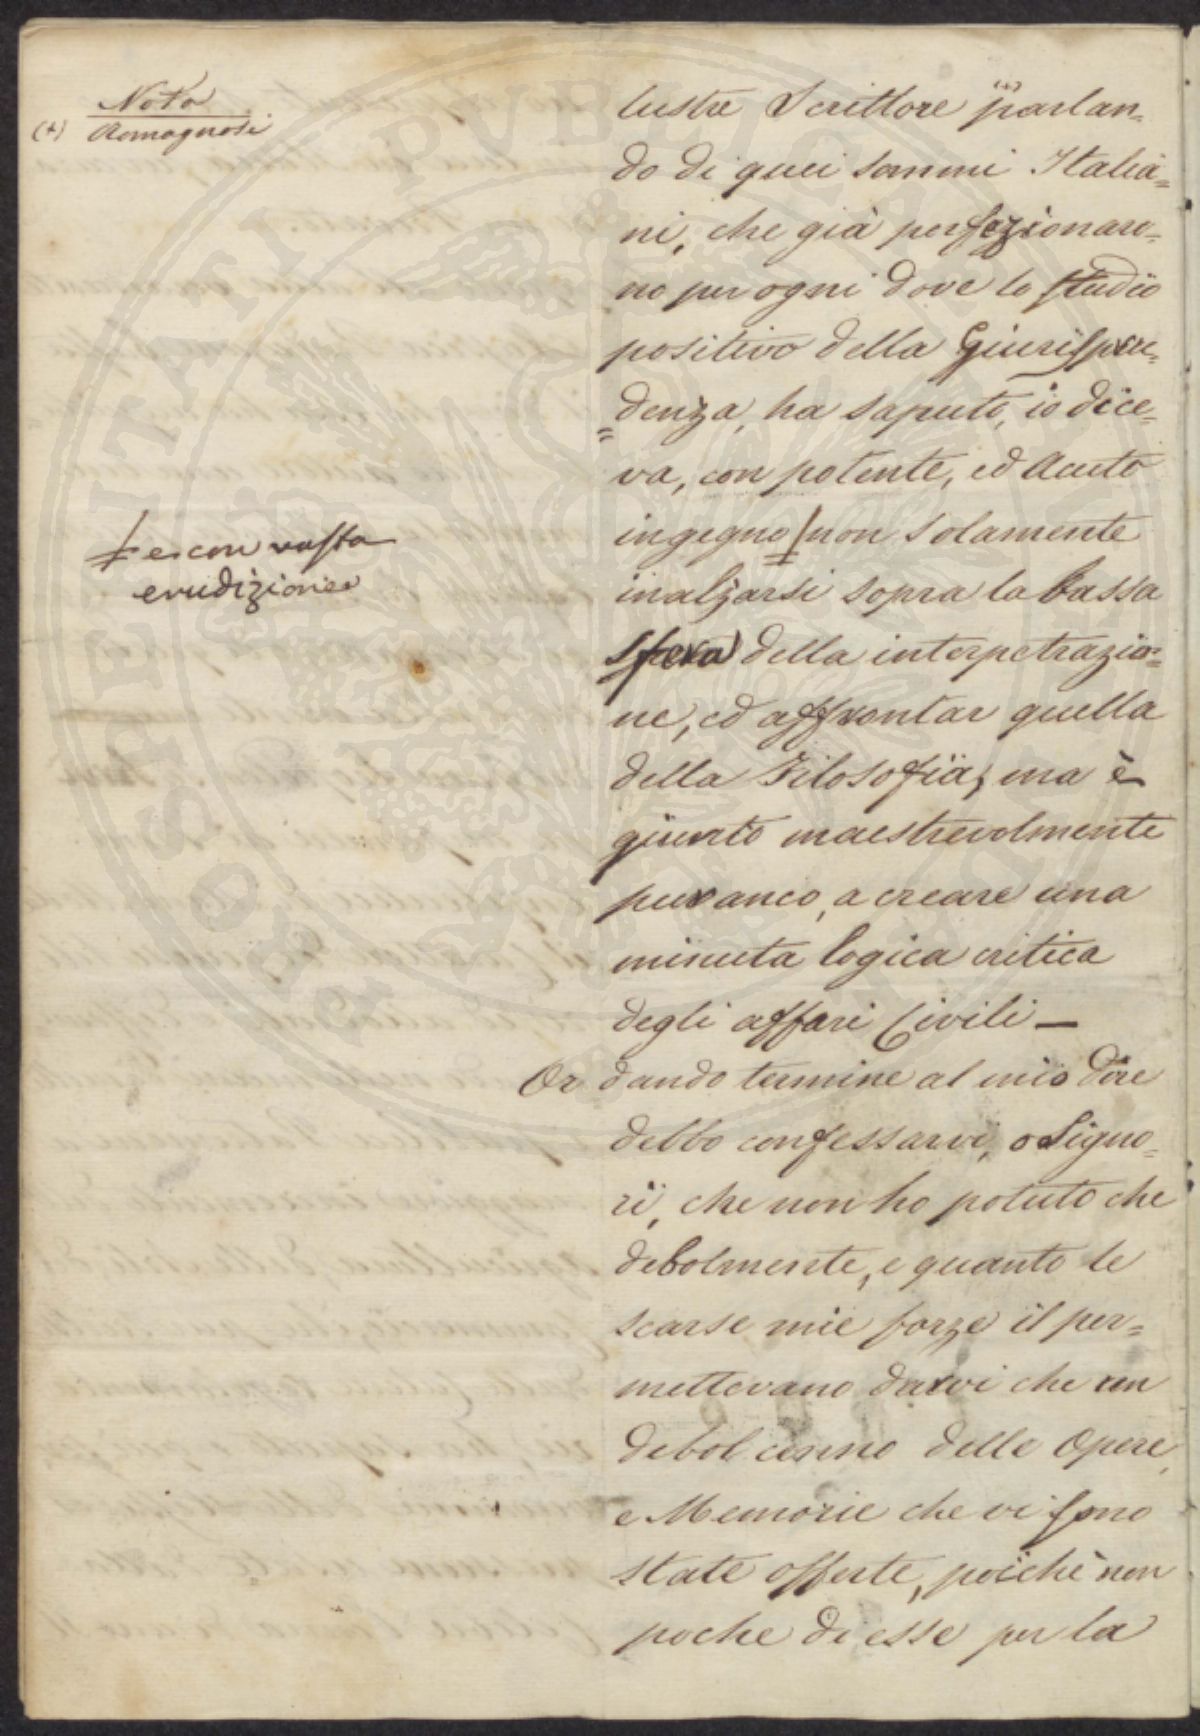 Nota
(+) Romagnosi
lustre Scrittore (+) parlan-
do di quei sommi Italia=
ni, che già perfezionaro=
no per ogni dove lo studio
positivo della Giurispru=
=denza, ha saputo, io dice=
va, con potente, ed acuto
ingegno non solamente
e con vasta
erudizione
inalzarsi sopra la bassa
sfera della interpetrazio=
ne, ed affrontar quella
della Filosofia, ma è
giunto maestrevolmente
puranco, a creare una
minuta logica critica
degli affari Civili —
Or dando termine al mio dire
debbo confessarvi, o Signo=
ri, che non ho potuto che
debolmente, e quanto le
scarse mie forze il per=
mettevano darvi che un
debol cenno delle Opere,
e Memorie che vi sono
state offerte, poichè non
poche di esse per la
POSTERITATI PUBLICA